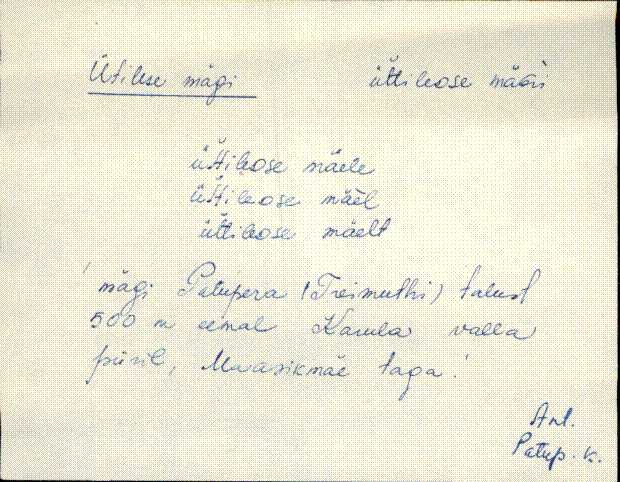 Ütilese mägi üttileose mäǵi
üttileose mäele
üttileose mäel
üttileose mäelt
mägi Patupera (Treimuthi) talust
500 m eemal Karula valla
piiril, Maasikmäe taga.
Ant.
Patup. k.